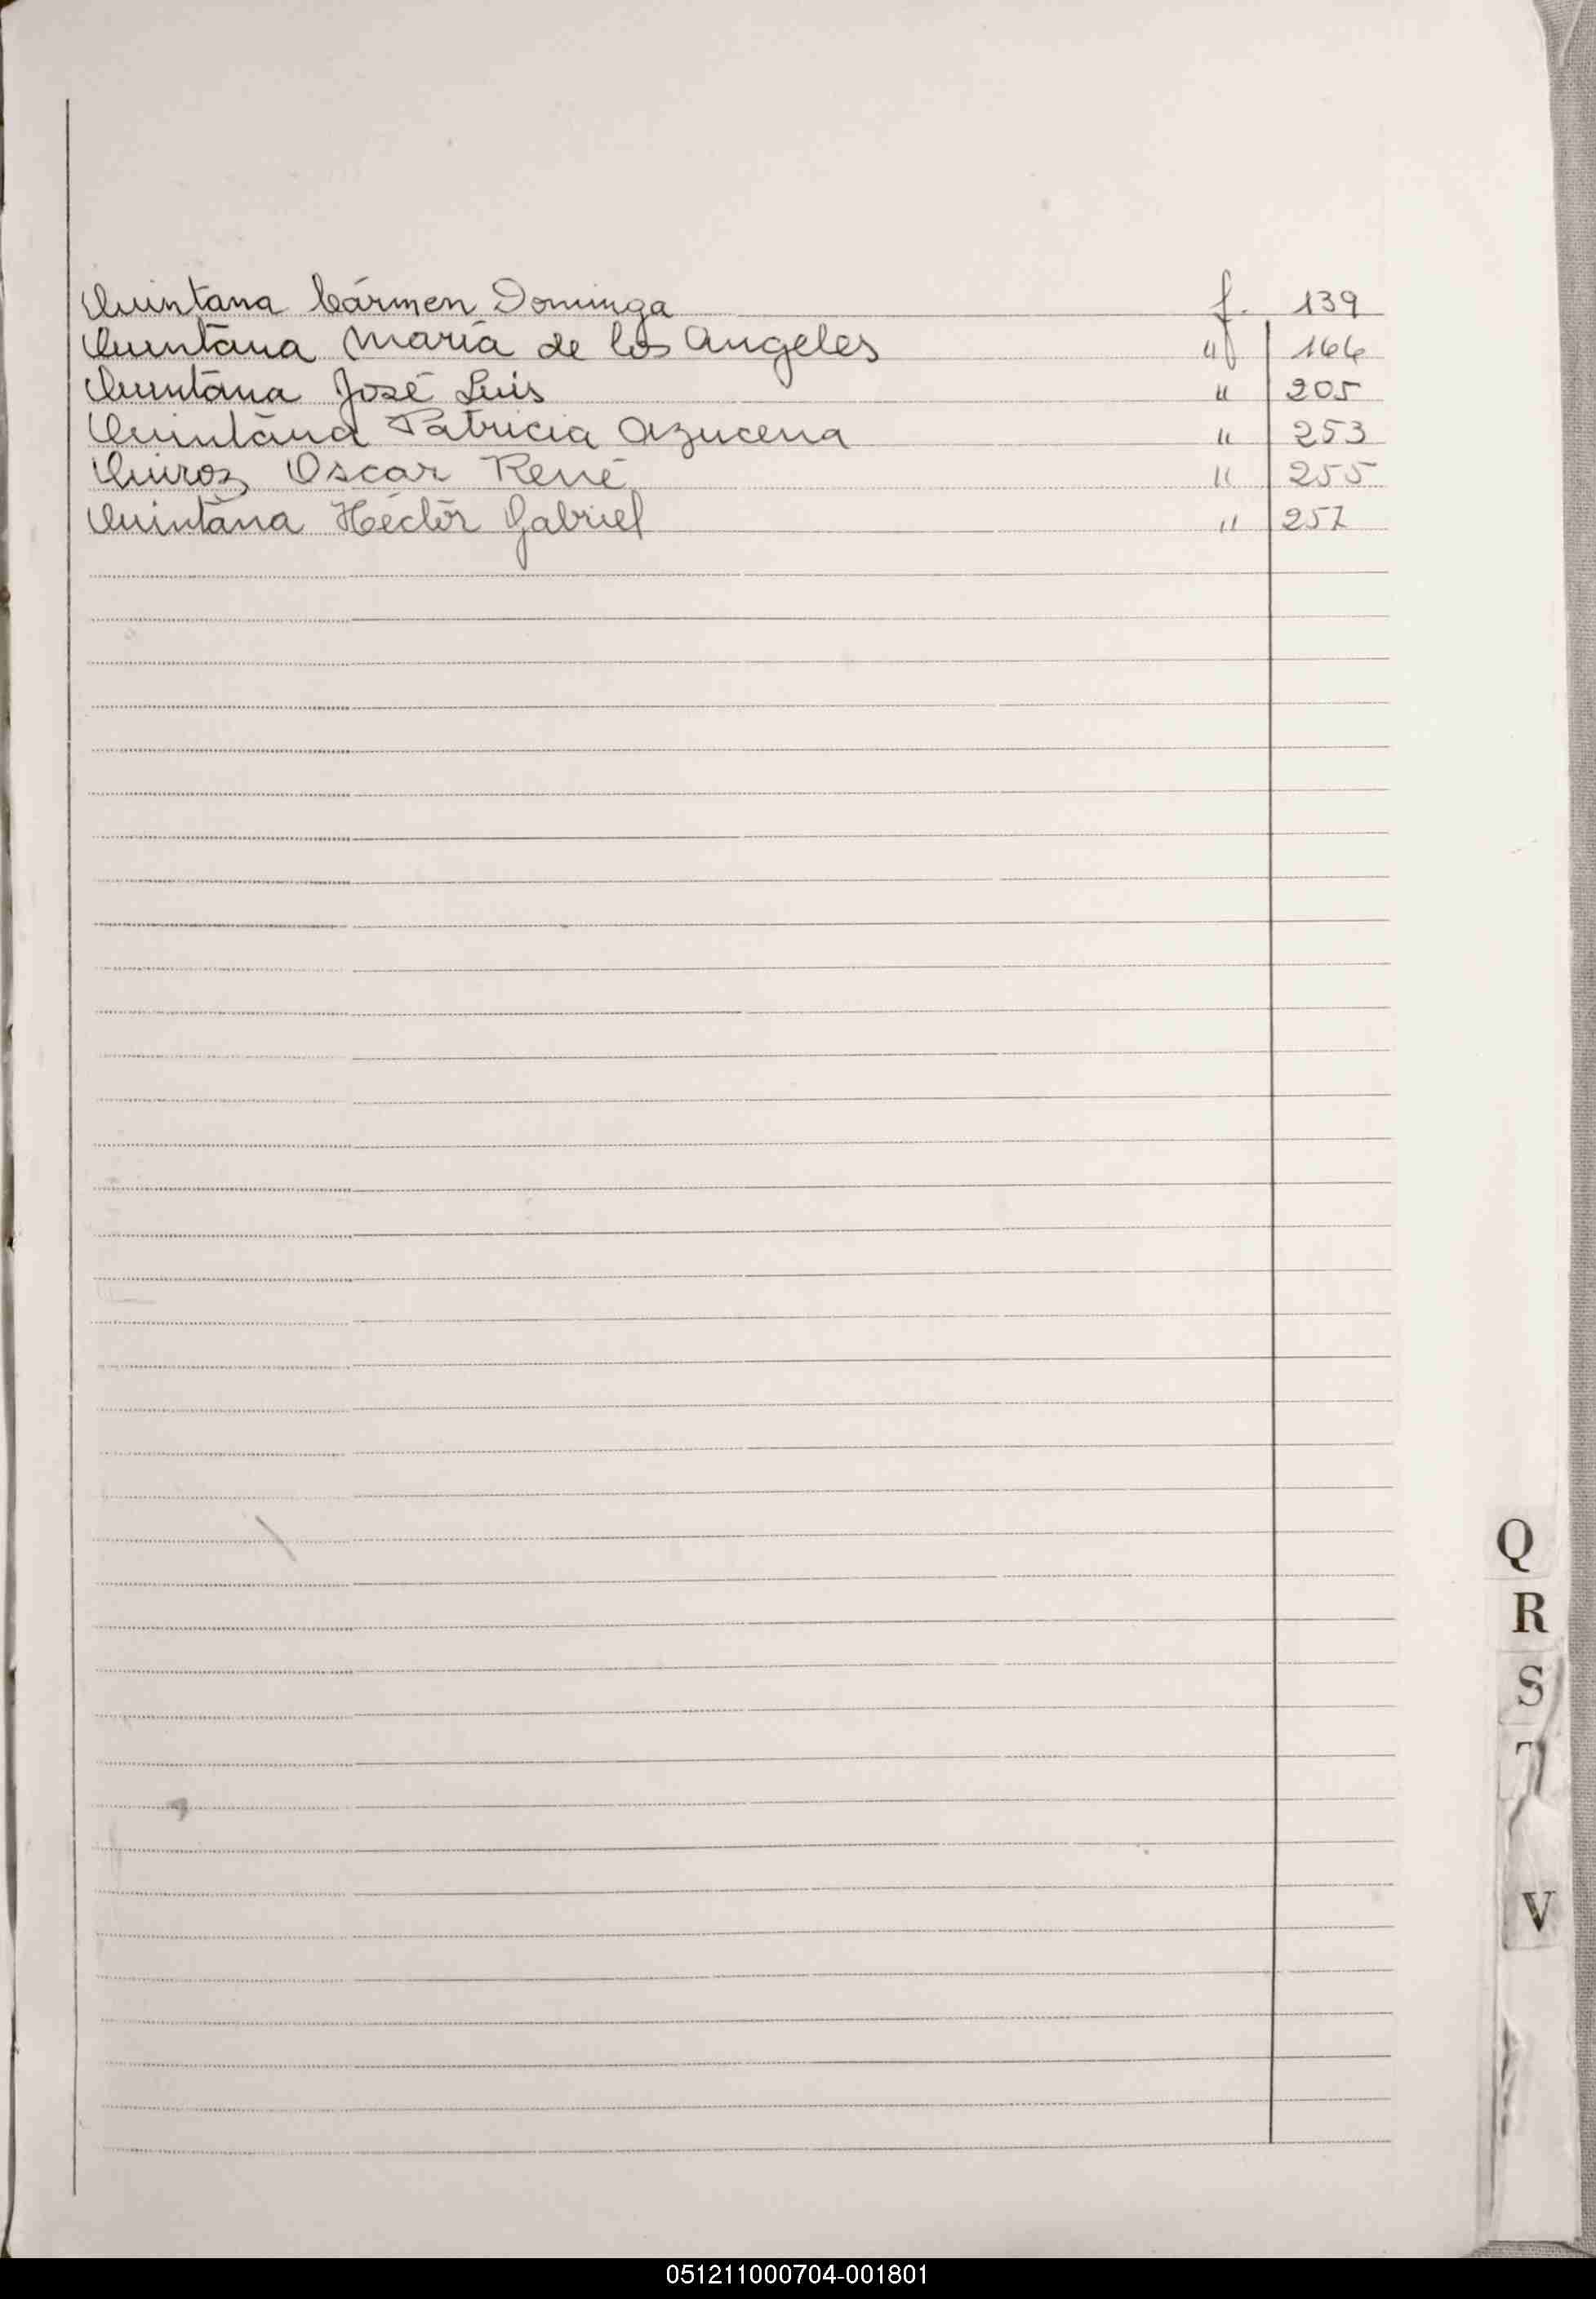 Quintana Cármen Dominga f. 139
Quintana María de los Angeles " 166
Quintana José Luis " 205
Quintana Patricia Azucena " 253
Quiroz Oscar René " 255
Quintana Héctor Gabriel " 257
Q
R
S
T
V
051211000704-001801